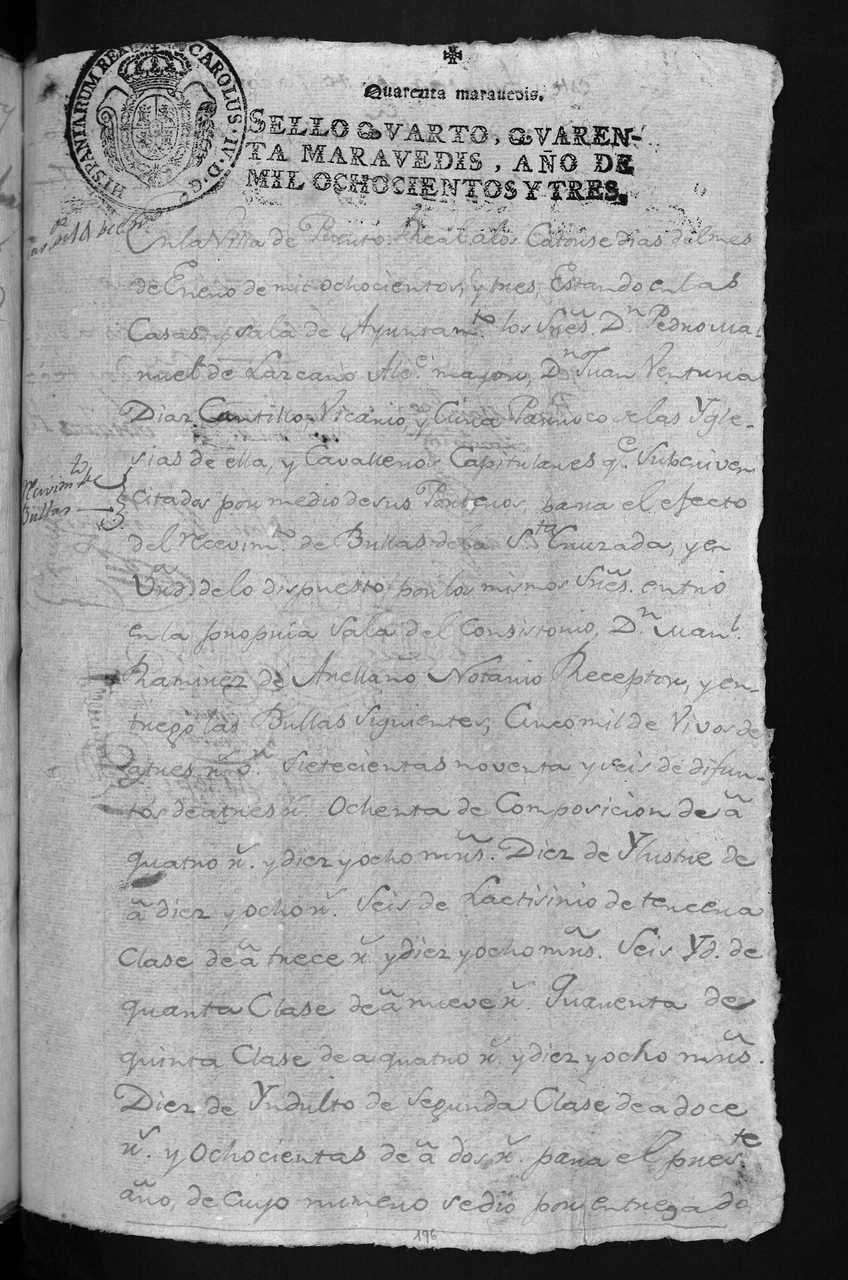 HISPANIARUM REX CAROLUS·IV·D·G·
Quarenta maravedis.
SELLO QVARTO, QVAREN-
TA MARAVEDIS, AÑO DE
MIL OCHOCIENTOS Y TRES.
En la Villa de Puerto Real a los Catorse dias del mes
de Enero de mil ochocientos, y tres, Estando en las
Casas, y Sala de Ayuntam.to los Sres. Dn Pedro Ma-
nuel de Lazcano Alc.e mayor, Dn Juan Ventura
Diaz Cantillo, Vicario, y Cura Parroco de las Ygle-
sias de ella, y Cavalleros Capitulares q.e Subcriven
Recivim.to de
Bullas
Citados por medio de sus Porteros, para el efecto
del recevim.to de Bullas de la S.ta Cruzada, y en
Vrd. de lo dispuesto por los mismos Sres. entrò
en la propria Sala del Consistorio, Dn Man.l
Ramirez de Arellano Notario Receptor, y en-
tregò las Bullas Siguientes; Cinco mil de Vivos de
a tres r.s v.n Sietecientas noventa y seis de difun-
tos de a tres r.s Ochenta de Composicion de â
quatro r.s y diez y ocho mrs. Diez de Ylustre de
â diez y ocho r.s Seis de Lactisinio de tercera
Clase de â trece r.s y diez y ocho mrs. Seis Yd. de
quarta Clase de â nueve r.s Quarenta de
quinta Clase de a quatro r.s y diez y ocho mrs.
Diez de Yndulto de Segunda Clase de a doce
r.s y Ochocientas de â dos r.s para el pres.te
año, de Cuyo numero se diò por entregado
196